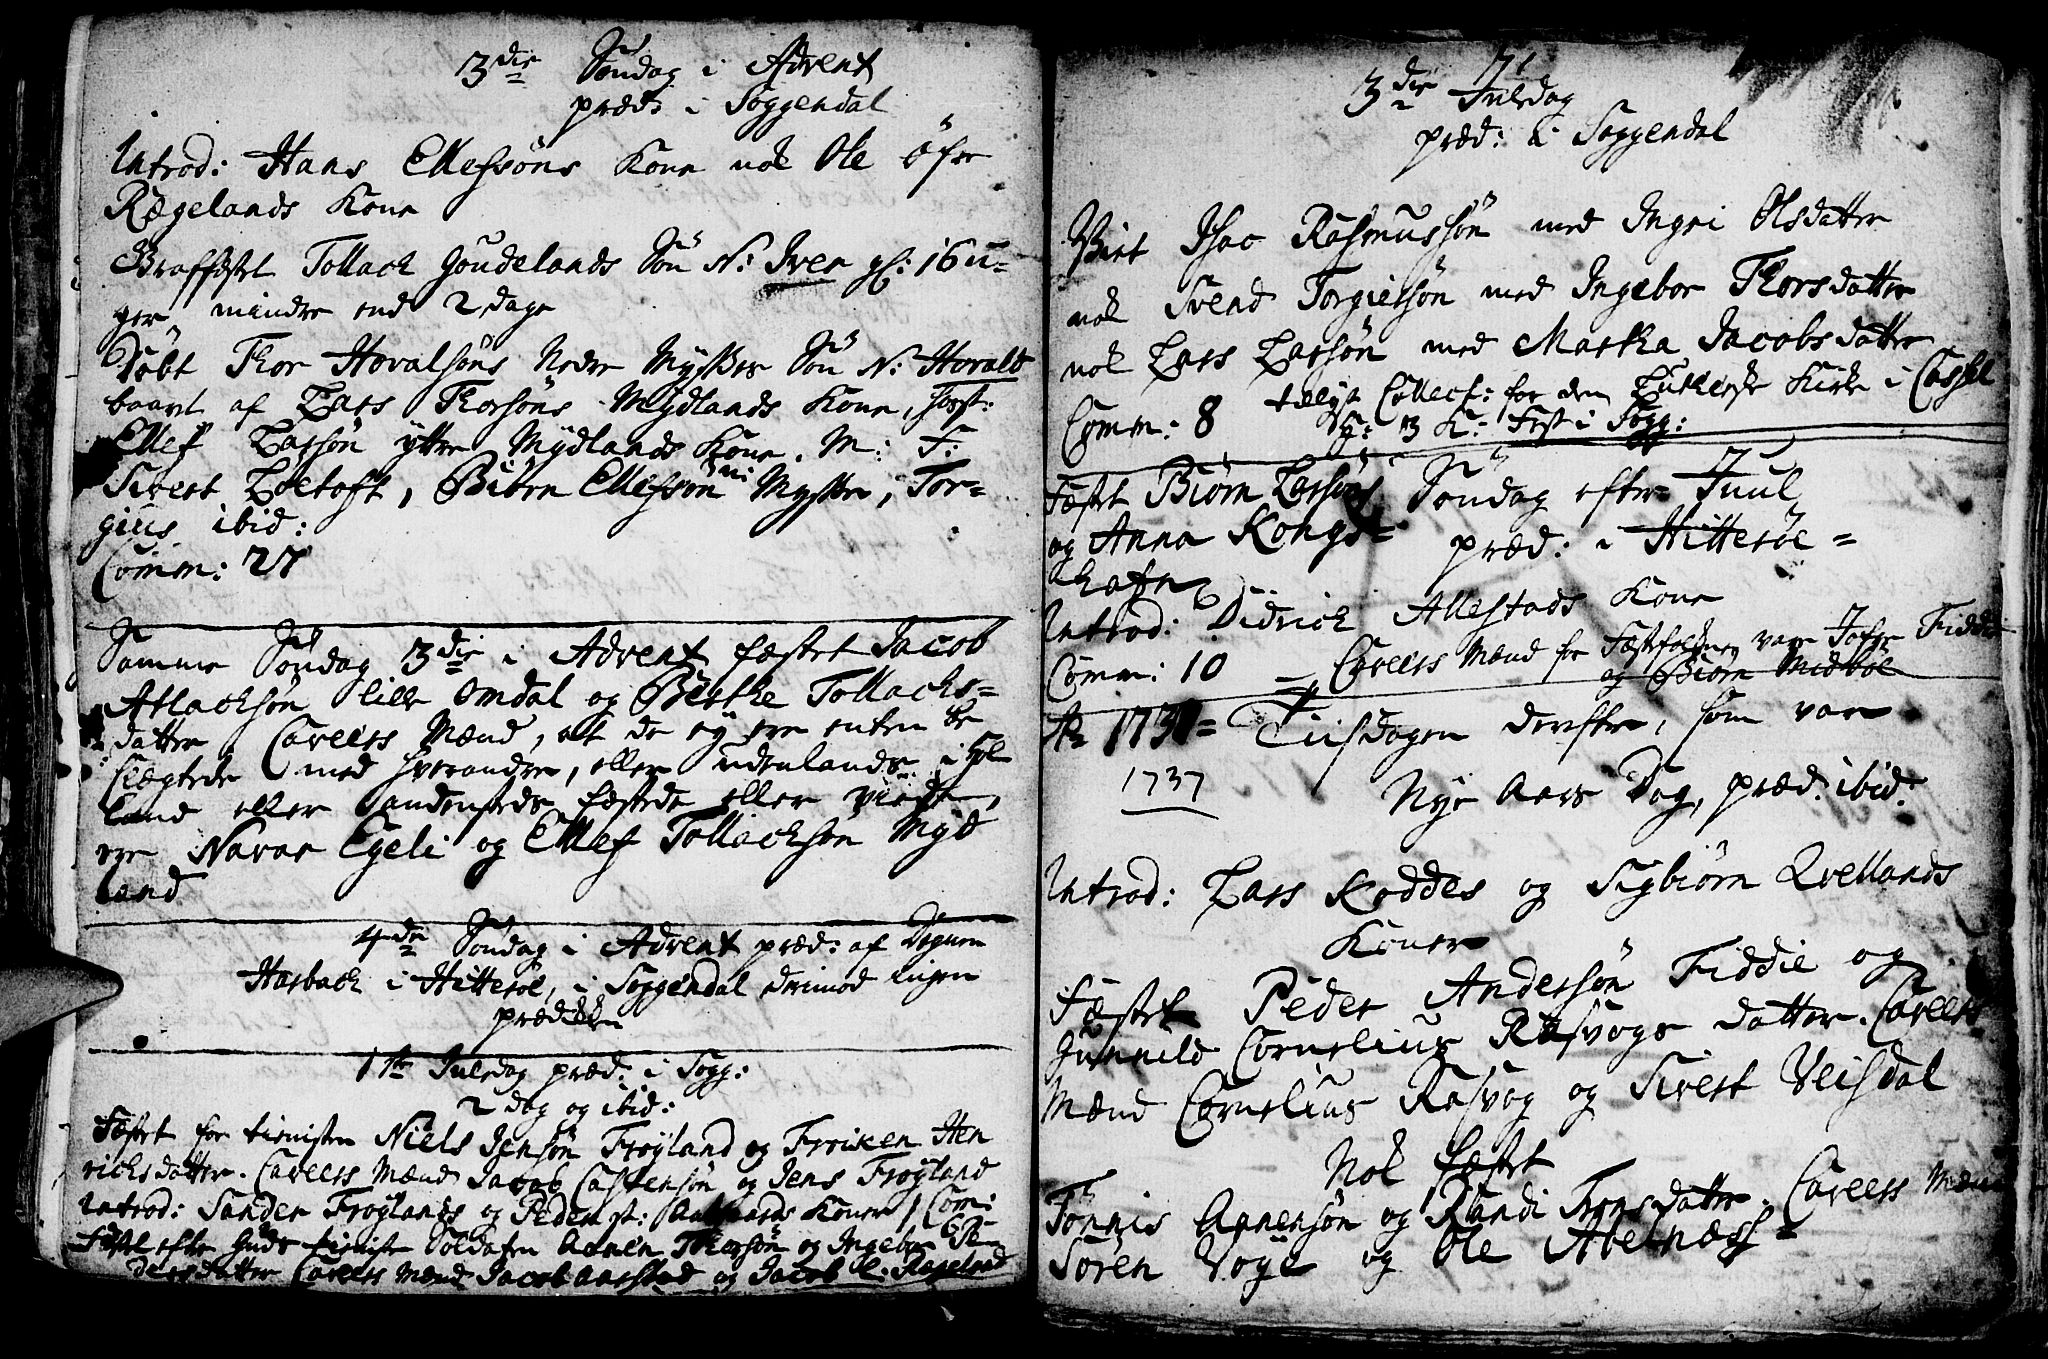 3die Søndag i Advent
præd: i Soggendal
Introd: Hans Ellefsøns Kone nok Ole öfre
Rægelands Kone
Graffæstet Tollack Goudelands Søn N: Iver gl: 16 u=
ger mindre end 2 dage
Döbt Thor Hovalsöns Nedre Mysses Søn N: Hovald
baaret af Lars Thorsøns Mydlands Kone, forst:
Ellef Larsøn yttre Mydlands Kone. M: F:
Sivert Löetoft, Biörn Ellefsøn Mysse, Tor=
gius ibid:
Comm: 27
Samme Søndag 3die i Advent fæstet Jacob
Atlacksøn lille Omdal og Berthe Tollacks=
datter Caveers Mænd, at de ey ere enten be
slegtede med hverandre, eller udenlands i Hol
land eller andensteds fæstede eller viede,
ere Navar Egeli og Ellef Tollacksøn Myd
land
4de Søndag i Advent præd: af Degnen
Harback i Hitterøe, i Soggendal derimod ingen
prædiken
1te Juledag præd: i Sogg:
2 dag og ibid:
Fæstet for tienisten Niels Jensøn Frøyland og Froiken Hen
ricksdatter. Caveers Mænd Jacob Castensøn og Jens Frøyland
Introd: Sander Frøylands og Peder Koner Com:
Fæstet efter Guds tieniste Soldaten Aanen Thorsøn og Ingebor Pe=
dersdatter Caveers Mænd Jacob Aarstad og Jacob Rægeland
71
3die Juledag
præd: i Soggendal
Viet Isac Rasmussøn med Ingri Olsdatter
nok Svend Torgiersøn med Ingebor Thorsdatter
nok Lars Larsøn med Martha Jacobsdatter
tillyst Collect: for den Lutherske Kirke i Cassel
Comm: 8
Fæstet Biörn Larsøns Søndag efter Juul
og Anna Kongs= præd: i Hitterøe=
hafn
Introd: Didrick Allestads Kone
Comm: 10 Caveers Mænd for Fæstfolkene vare Tofte Fidde
og Biörn Midbøe
Ao 1737= Tiisdagen derefter, som var
1737
Nye Aars Dag, præd: ibid:
Introd: Lars Roddes og Sigbiörn Qvellands
Koner
Fæstet Peder Andersøn Fiddie og
Gunnild Cornelius Rasvogs datter. Caveers
Mænd Cornelius Rasvog og Sivert Veisdal
Nok fæstet
Tönnis Aanensøn og Randi Tronsdatter. Caveers Mænd
Søren Voge og Ole Abelnæss=